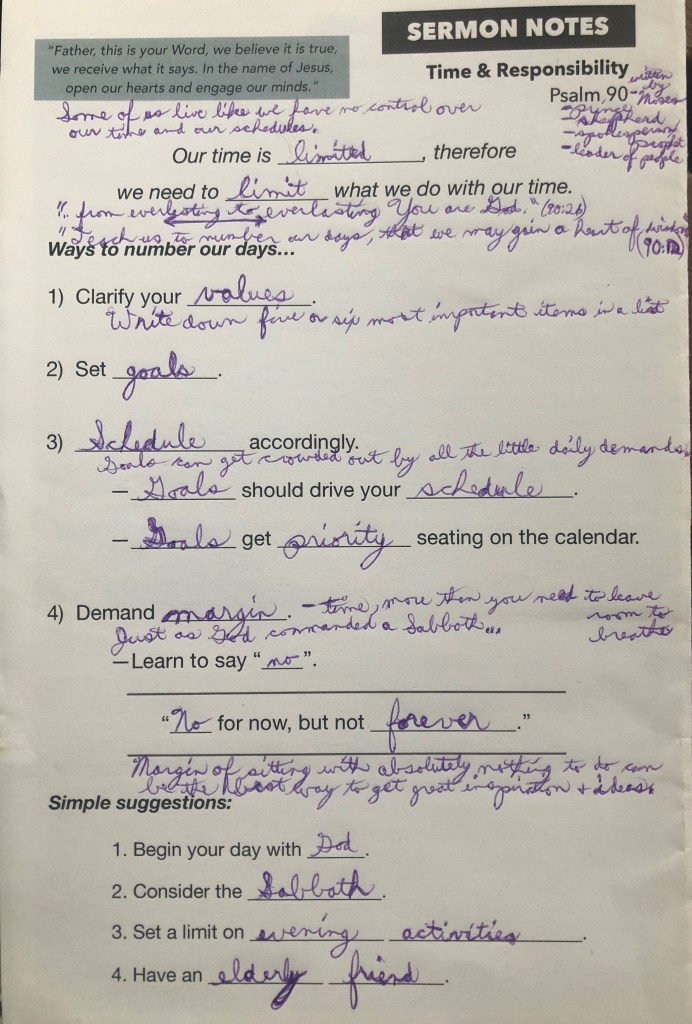 SERMON NOTES
"Father, this is your Word, we believe it is true,
we receive what it says. In the name of Jesus,
open our hearts and engage our minds."
Time & Responsibility
Psalm 90 - written
by
Moses
- prince
- shepherd
- spokesperson
prophet
- leader of people
Some of us live like we have no control over
our time and our schedules.
Our time is limited, therefore
we need to limit what we do with our time.
".. from everlasting to everlasting You are God." (90:2b)
"Teach us to number our days, that we may gain a heart of wisdom"
(90:12)
Ways to number our days...
1) Clarify your values.
Write down five or six most important items in a list
2) Set goals.
3) Schedule accordingly.
Goals can get crowded out by all the little daily demands.
– Goals should drive your schedule.
– Goals get priority seating on the calendar.
4) Demand margin. - time, more than you need to leave
room to
breathe
Just as God commanded a Sabboth...
– Learn to say "no".
"No for now, but not forever."
Margin of sitting with absolutely nothing to do can
be the best way to get great inspiration + ideas.
Simple suggestions:
1. Begin your day with God.
2. Consider the Sabbath.
3. Set a limit on evening activities.
4. Have an elderly friend.